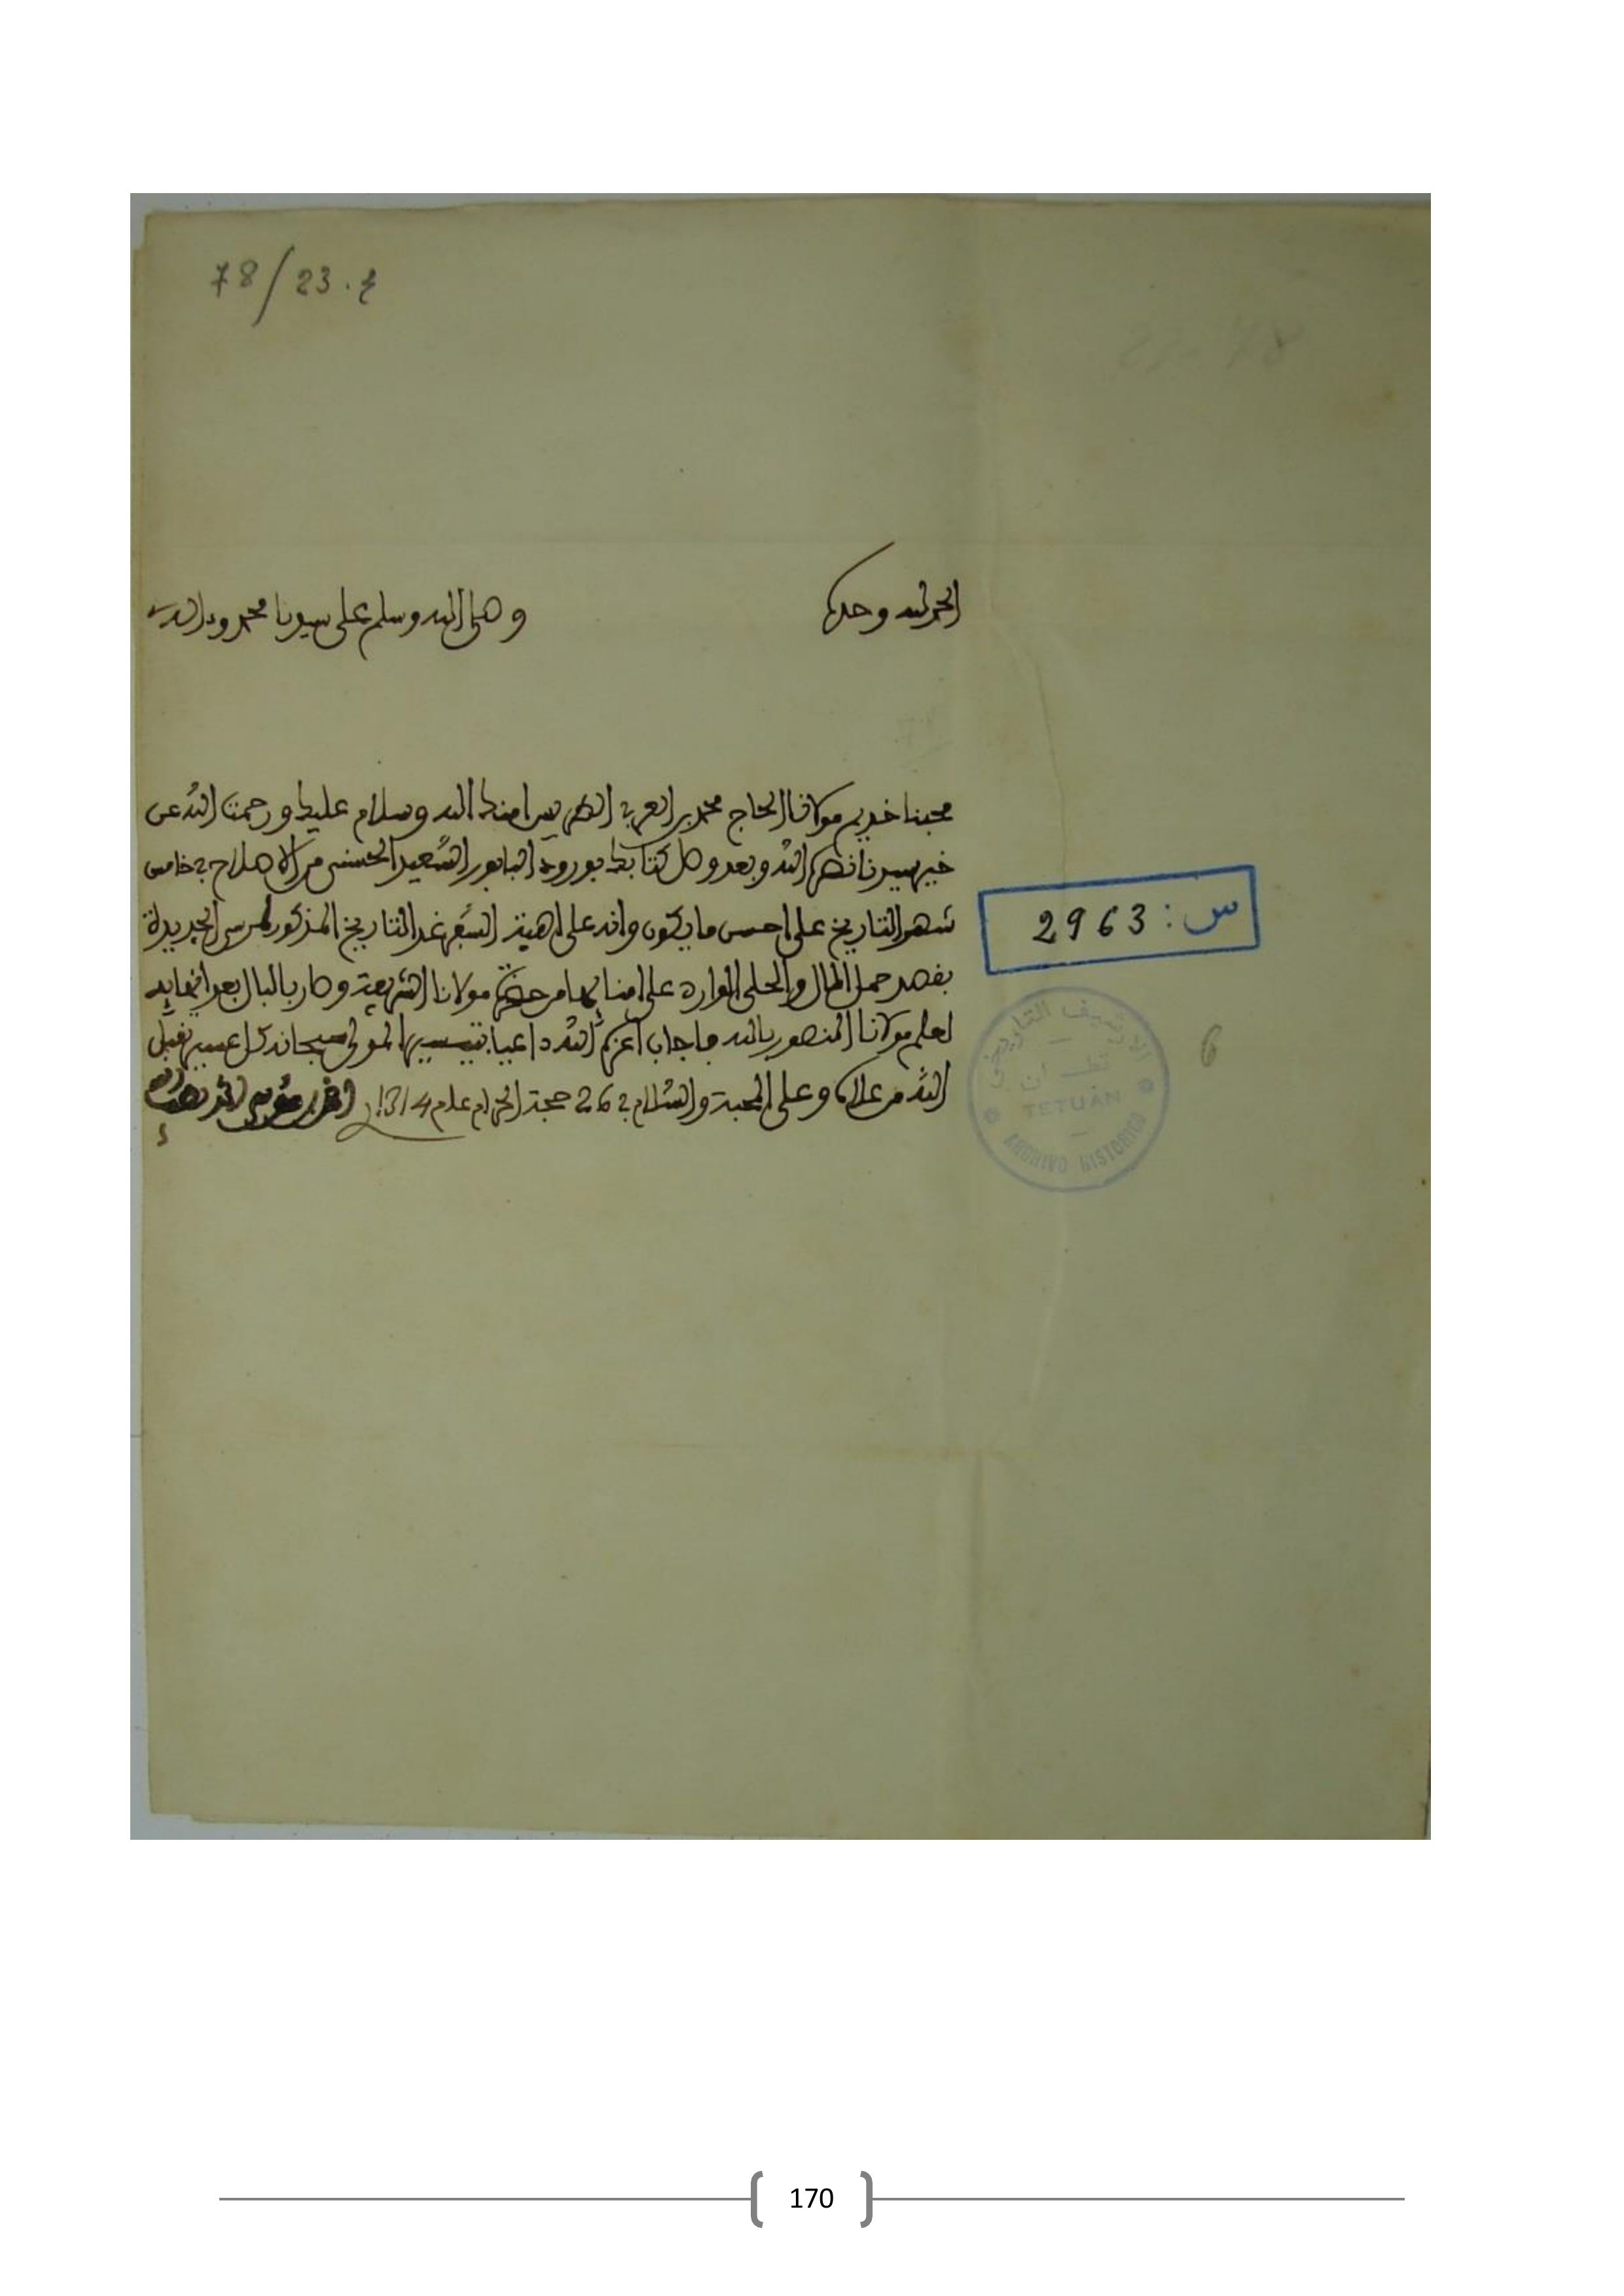 78/23.ع
الحمد لله وحده
وصلى الله وسلم على سيدنا محمد وءاله
محبنا خديم مولانا الحاج محمد بن العربي الطريس امنك الله وسلام عليك ورحمت الله عن
خير سيدنا نصره الله وبعد وصل كتابك بورود البابور السعيد الحسني من الاصلاح في خامس
شهر التاريخ على احسن ما يكون وانه على اهبة السفر غد التاريخ المذكور لمرسى الجديدة
بقصد حمل المال والحلي الوارد على امنائها من حضرة مولانا الشريفة وصار بالبال بعد انهايه
لعلم مولانا المنصور بالله فاجاب اعزه الله داعيا بتيسير المولى سبحانه كل عسير تقبل
الله من علاه وعلى المحبة والسلام في 26 حجة الحرام عام 1314
س : 2963
الارشيف التاريخي
تطـــوان
TETUÁN
ARCHIVO HISTORICO
6
170